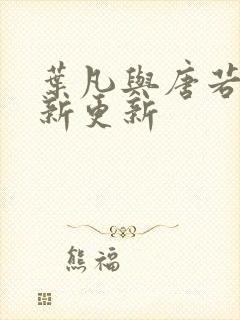 葉凡與唐若
新更新
熊福